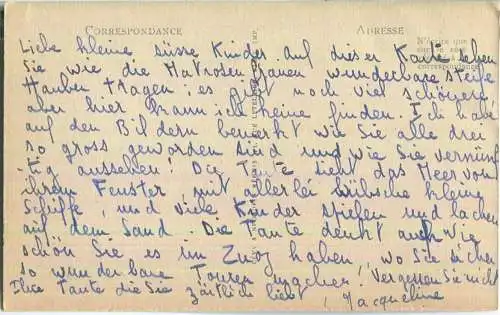 CORRESPONDANCE
ADRESSE
Liebe kleine süsse Kinder auf dieser Karte sehen
Sie wie die Matrosen wunderbare steife
Hauben tragen; es gibt noch viel schönere
aber hier kann ich keine finden. Ich habe
auf den Bildern bemerkt wie Sie alle drei
so gross geworden sind und wie Sie vernünf-
tig aussehen! Die Tante sieht das Meer von
ihrem Fenster, mit allerlei hübsche kleine
Schiffe, und viele Kinder spielen und lachen
auf dem Sand. Die Tante denkt auch wie
schön Sie es im Zug haben wo Sie sicher
so wunderbare Touren machen! Vergessen Sie nicht
Ihre Tante die Sie zärtlich liebt, Jacqueline